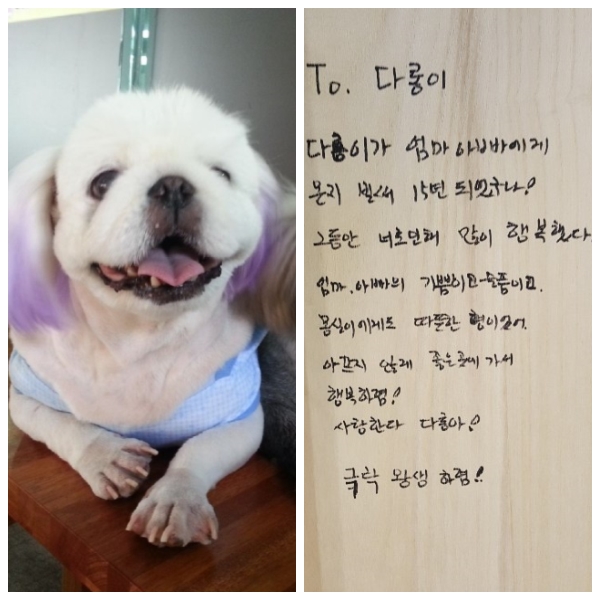 To. 다롱이
다롱이가 엄마 아빠에게
온지 벌써 15년 되었구나!
그동안 너로인해 많이 행복했다.
엄마.아빠의 기쁨이고-슬픔이고.
몽실이에게도 따뜻한 형이었어.
아프지 않게 좋은곳에 가서
행복하렴!
사랑한다 다롱아!
극락 왕생 하렴!!